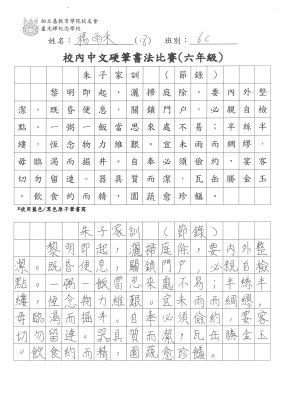 柏立基教育學院校友會
盧光輝紀念學校
姓名：楊雨禾 (18) 班別：6C
校內中文硬筆書法比賽(六年級)
朱子家訓（節錄）
黎明即起，灑掃庭除，要內外整
潔。既昏便息，關鎖門戶，必親自檢
點。一粥一飯當思來處不易；半絲半
縷，恆念物力維艱。宜未雨而綢繆，
毋臨渴而掘井。自奉必須儉約，宴客
切勿留連。器具質而潔，瓦缶勝金玉
。飲食約而精，園蔬愈珍饈。
*使用藍色/黑色原子筆書寫
朱子家訓（節錄）
黎明即起，灑掃庭除，要內外整
潔。既昏便息，關鎖門户，必親自檢
點。一粥一飯當思來處不易；半絲半
縷，恆念物力維艱。宜未雨而綢繆，
毋臨渴而掘井。自奉必須儉約，宴客
切勿留連。器具質而潔，瓦缶勝金玉
。飲食約而精，園蔬愈珍饈。